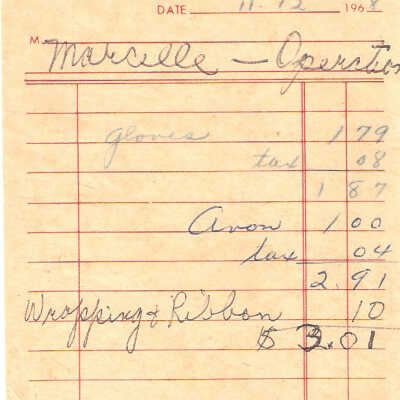 DATE 11-12 1968
M Marcelle — Operation
gloves 1 79
tax 08
1 87
Avon 1 00
tax 04
2.91
Wrapping & Ribbon 10
$ 3.01